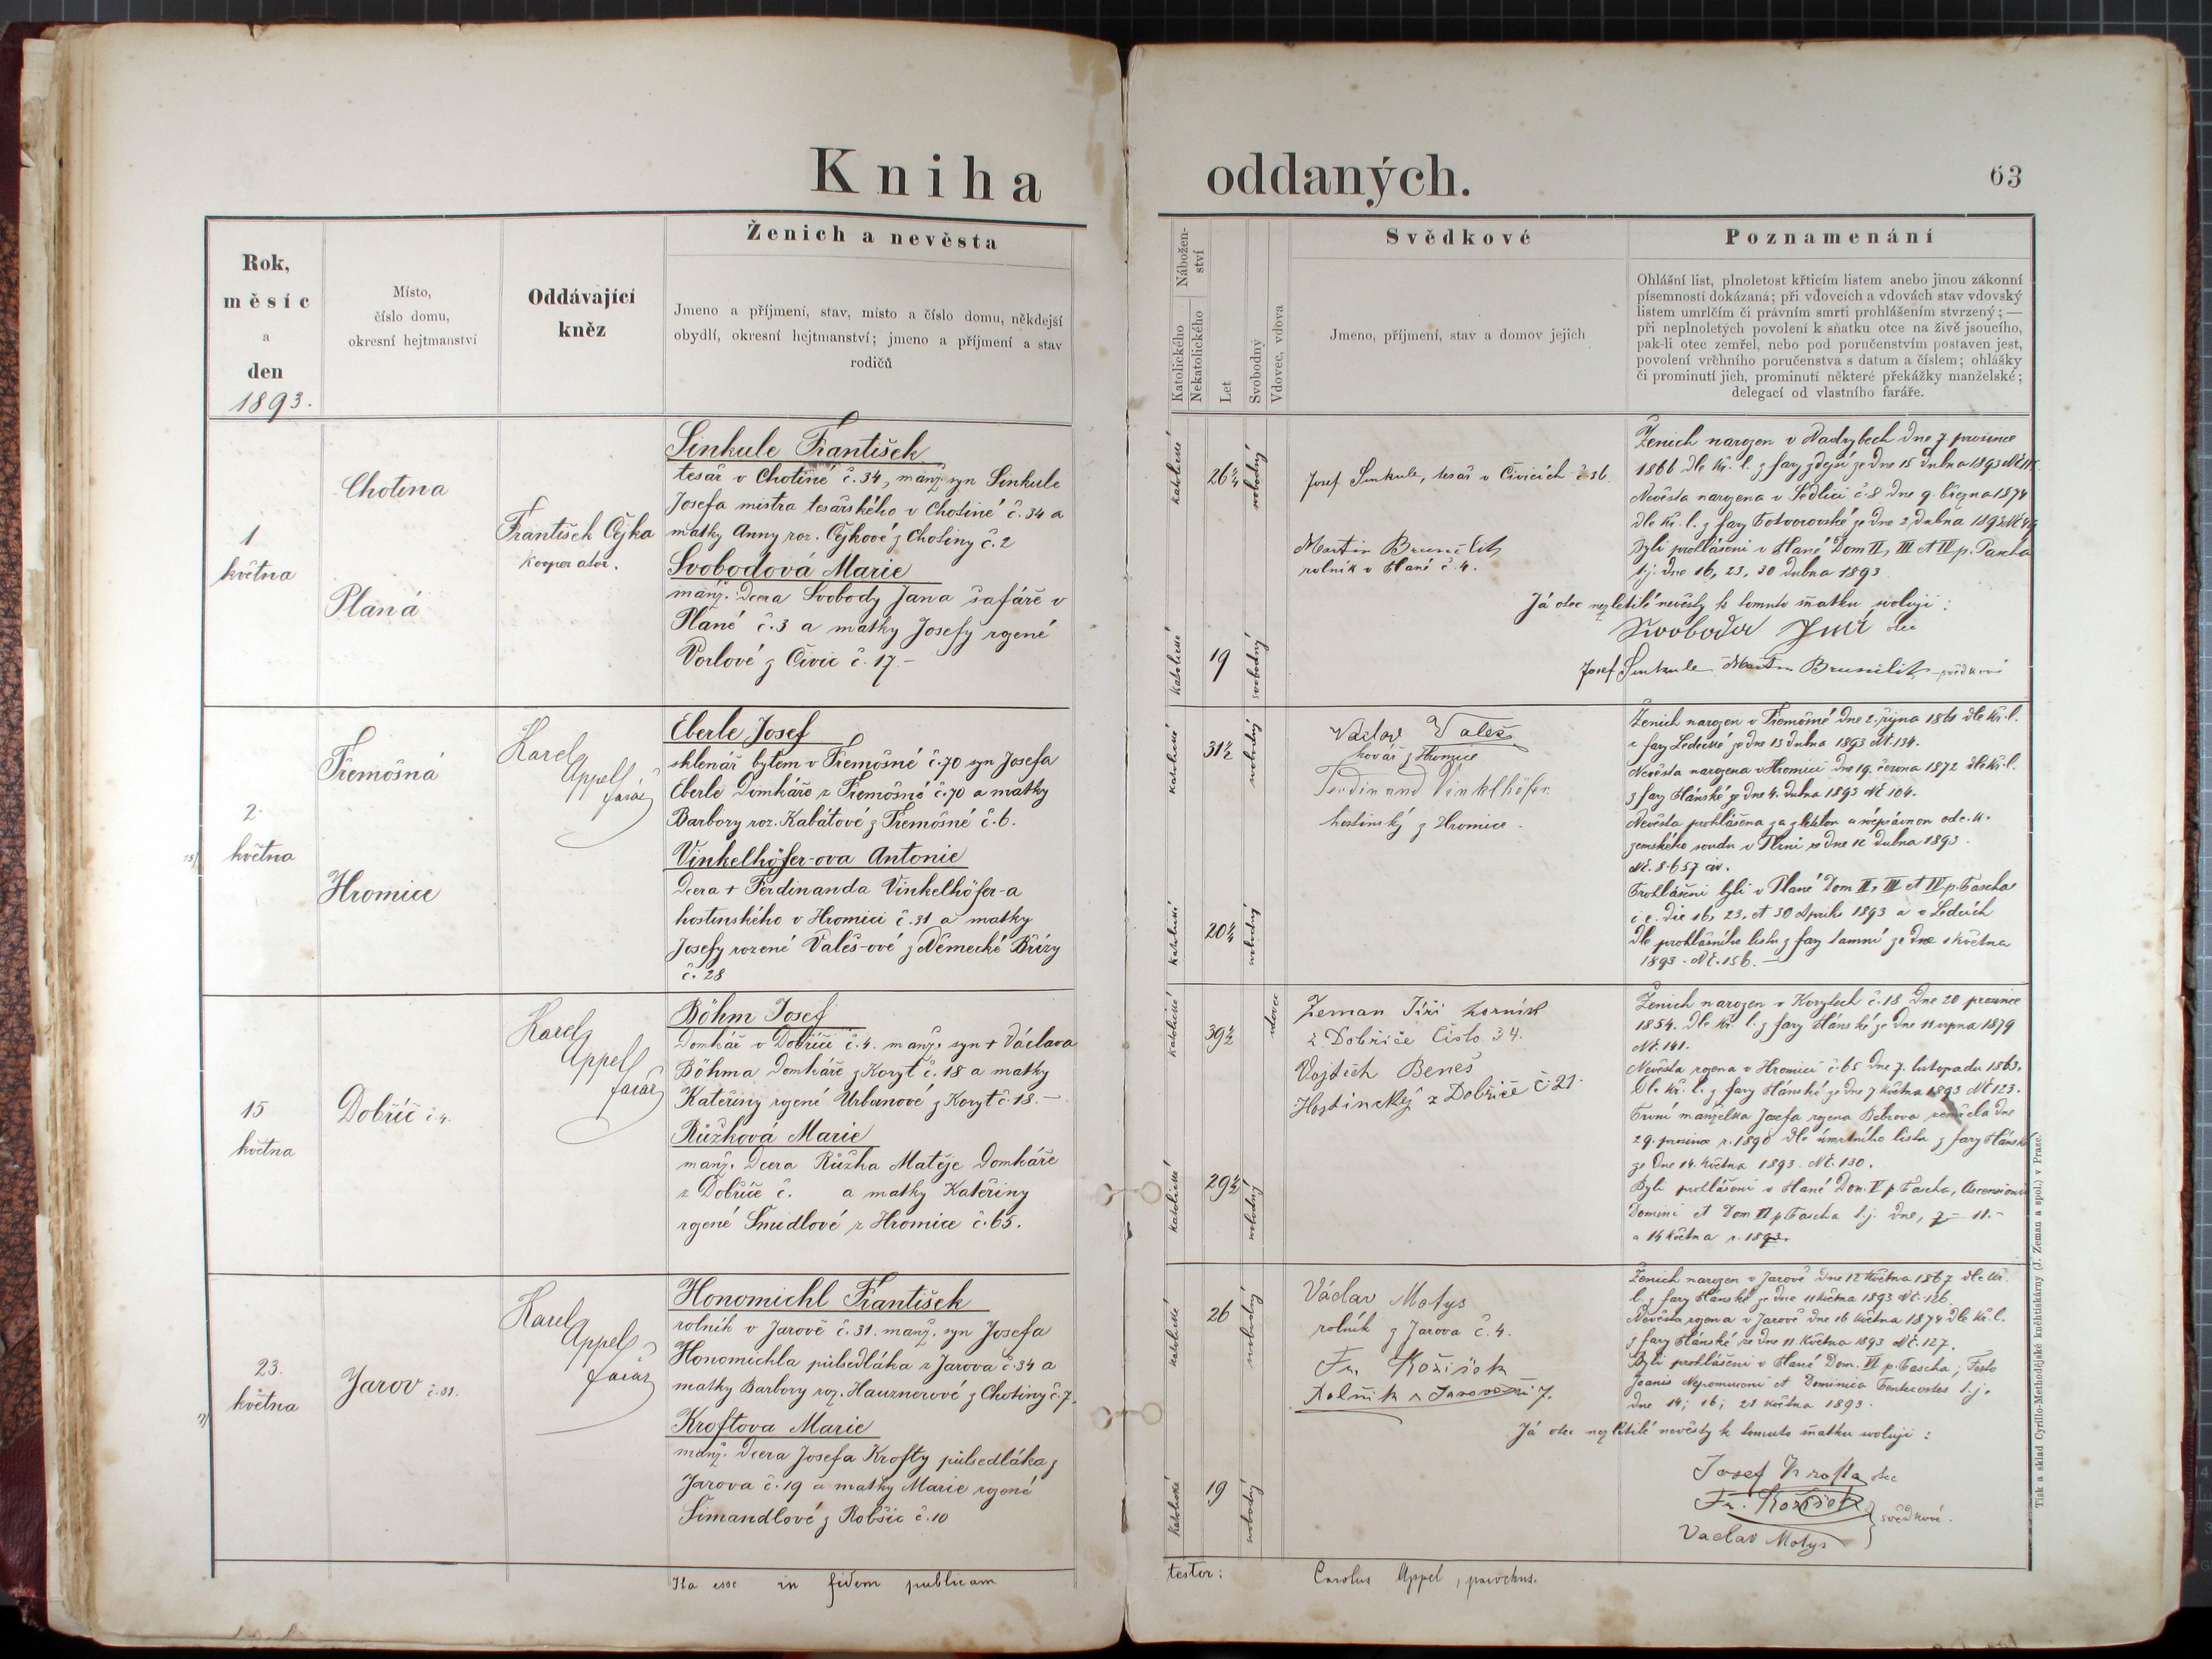 Kniha oddaných.
63
Rok,
měsíc
a
den
1893.
Místo,
číslo domu,
okresní hejtmanství
Oddávající
kněz
Ženich a nevěsta
Jmeno a příjmení, stav, místo a číslo domu, někdejší
obydlí, okresní hejtmanství; jmeno a příjmení a stav
rodičů
Nábožen-
ství
Katolického
Nekatolického
Let
Svobodný
Vdovec, vdova
Svědkové
Jmeno, příjmení, stav a domov jejich
Poznamenání
Ohlášní list, plnoletost křticím listem anebo jinou zákonní
písemností dokázaná; při vdovcích a vdovách stav vdovský
listem umrlčím či právním smrti prohlášením stvrzený; —
při neplnoletých povolení k sňatku otce na živě jsoucího,
pak-li otec zemřel, nebo pod poručenstvím postaven jest,
povolení vrchního poručenstva s datum a číslem; ohlášky
či prominutí jich, prominutí některé překážky manželské;
delegací od vlastního faráře.
1
května
Chotina
Planá
František Čejka
kooperator.
Sinkule František
tesař v Chotině č. 34, manž. syn Sinkule
Josefa mistra tesařského v Chotině č. 34 a
matky Anny roz. Čejkové z Chotiny č. 2
Svobodová Marie
manž. dcera Svobody Jana šafáře v
Plané č. 3 a matky Josefy rozené
Vorlové z Čivic č. 17.-
katolické
26
svobodný
katolické
19
svobodný
Josef Sinkule, tesař v Čivicích č 36.
Martin Brunclik
rolník v Plané č. 4.
Ženich narozen v Nadrybech dne 7 prosince
1866 dle kř. l. z fary zdejší ze dne 15 dubna 1893
Nevěsta narozena v Sedlici č. 8 dne 9. března 1874
dle kř. l. z fary ze dne 2 dubna 1893
Byli prohlášeni v Plané Dom II, III et IV p. Pascha
t.j. dne 16, 23, 30 dubna 1893
Já otec nezletilé nevěsty k tomuto sňatku svoluji:
Swoboda Jan otec
Josef Sinkule Martin Brunclik svědkové
15)
2.
května
Třemošná
Hromice
Karel
Appel
farář
Eberle Josef
sklenář bytem v Třemošné č. 70 syn Josefa
Eberle domkáře z Třemošné č. 70 a matky
Barbory roz. Kabátové z Třemošné č. 6.
Vinkelhöfer-ova Antonie
dcera + Ferdinanda Vinkelhöfer-a
hostinského v Hromici č. 31 a matky
Josefy rozené Valeš-ové z Německé Břízy
č. 28
katolické
31½
svobodný
katolické
20
svobodný
Vaclav Valeš
kovář z Hromice
Ferdinand Vinklhöfer
hostinský z Hromice.
Ženich narozen v Třemošné dne 2. října 1861 dle kř. l.
z fary Ledecké ze dne 13 dubna 1893 Nč. 134.
Nevěsta narozena v Hromici dne 19. června 1872 dle kř. l.
z fary Plánské ze dne 4. dubna 1893 Nč 104.
Nevěsta prohlášena za zletilou a svéprávnou od c. k.
zemského soudu v Plzni ze dne 12 dubna 1893.
Nč. 8.657 civ.
Prohlášeni byli v Plané Dom II, III et IV p. Pascha
i. e. die 16, 23. et 30 Aprilis 1893 a v Ledcích
dle prohlášního listu z fary tamní ze dne 1 května
1893. Nč. 156. —
15
května
Dobříč č 4.
Karel
Appel
farář
Böhm Josef
domkář v Dobříči č. 4. manž. syn + Václava
Böhma domkáře z Koryt č. 18 a matky
Kateřiny rozené Urbanové z Koryt č 18.—
Růžková Marie
manž. dcera Růžka Matěje domkáře
z Dobříče č. a matky Kateřiny
rozené Šmidlové z Hromice č. 65.
katolické
39½
vdovec
katolické
29½
svobodný
Zeman Jiří horník
z Dobříče Číslo 34.
Vojtěch Beneš
Hostinský z Dobříče č. 21.
Ženich narozen v Korytech č. 18 dne 20 prosince
1854. dle kř. l. z fary Plánské ze dne 11 srpna 1879
Nč. 141.
Nevěsta rozena v Hromici č. 65 dne 7. listopadu 1863.
Dle kř. l. z fary Plánské ze dne 7 května 1893 Nč 123.
První manželka Josefa rozena zemřela dne
29. prosince r. 1890 dle úmrtního listu z fary Plánské
ze dne 14. května 1893. Nč. 130.
Byli prohlášeni v Plané Dom. V p. Pascha, Ascensioni
Domini et Dom VI p Pascha t.j. dne, 7 – 11.–
a 14 května r. 1893.
17)
23.
května
Jarov č. 31.
Karel
Appel
farář
Honomichl František
rolník v Jarově č. 31. manž. syn Josefa
Honomichla půlsedláka z Jarova č. 34 a
matky Barbory roz. Hauznerové z Chotiny č. 7.
Kroftova Marie
manž. dcera Josefa Krofty půlsedláka z
Jarova č. 19 a matky Marie rozené
Šimandlové z Robčic č. 10
katolické
26
svobodný
katolické
19
svobodný
Václav Motys
rolník z Jarova č. 4.
Fr. Kožíšek
Rolník z Jarova 7.
Ženich narozen v Jarově dne 12 května 1867 dle kř.
l. z fary Plánské ze dne 11 května 1893 Nč. 126.
Nevěsta rozena v Jarově dne 16 května 1874 dle kř. l.
z fary Plánské ze dne 11. května 1893 Nč. 127.
Byli prohlášeni v Plané Dom. VI p. Pascha; Festo
Joanis Nepomuceni et Dominica Pentecostes t. j.
dne 14; 16; 21 května 1893.
Já otec nezletilé nevěsty k tomuto sňatku svoluji:
Josef Krofta otec
Fr. Kožíšek
Vaclav Motys
svědkové.
Ita esse in fidem publicam testor: Carolus Appel, parochus.
Tisk a sklad Cyrillo-Methodějské kněhtiskárny (J. Zeman a spol.) v Praze.